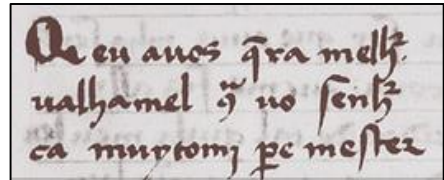 Qe eu auos q̄ra melhᷣ.
ualhamel ꝯᷓ uo ſenhᷣ
ca muytomj ꝑe meſter